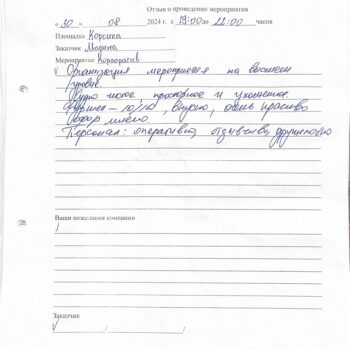 Отзыв о проведении мероприятия
« 30 » 08 2024 г. с 19:00 до 22:00 часов
Площадка Корсика
Заказчик Марина
Мероприятие Корпоратив
Организация мероприятия на высшем
уровне.
чистое, просторное и ухоженное.
Фуршет – 10/10, вкусно, очень красиво
Персонал: оперативно, отзывчиво, дружелюбно
Ваши пожелания компании
Заказчик